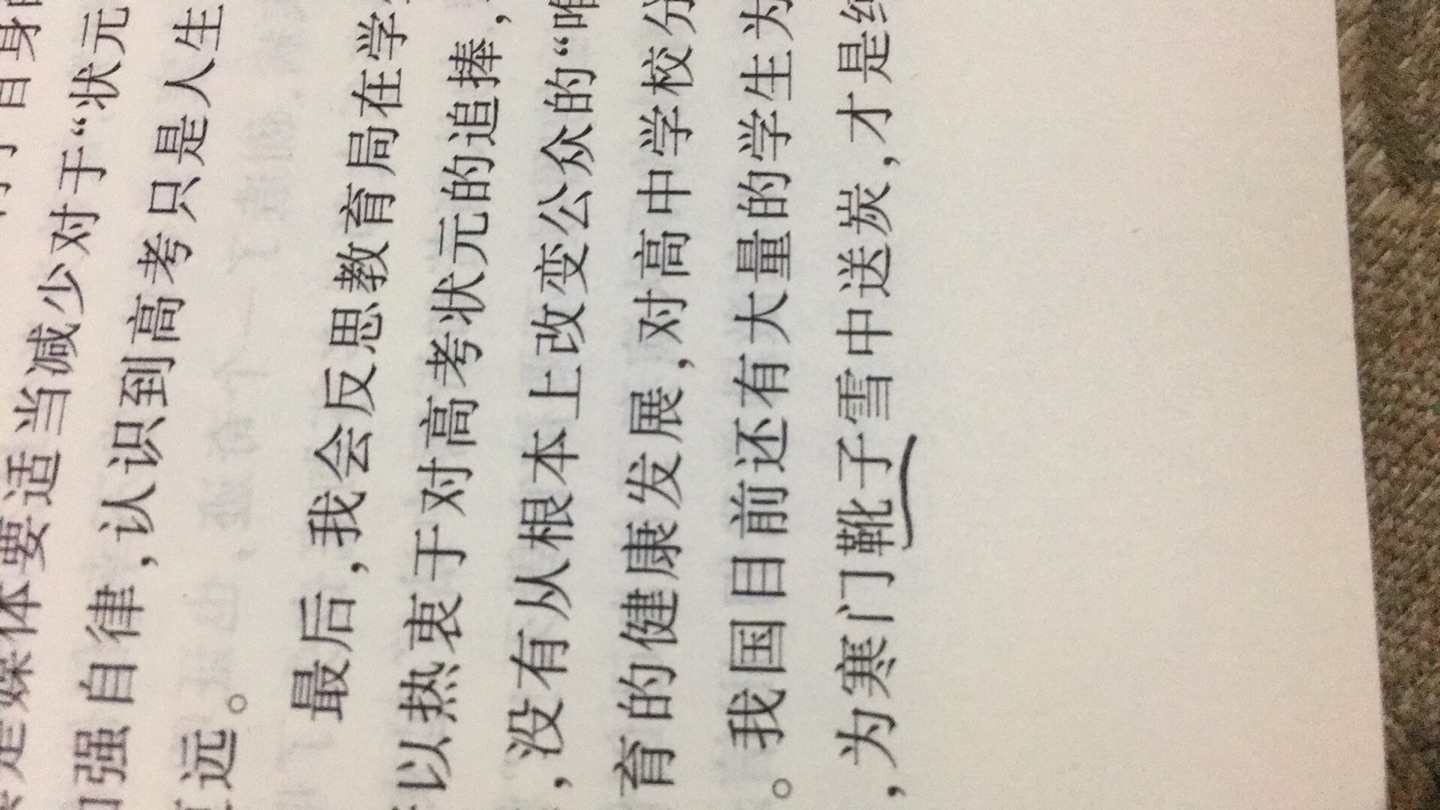 对于自身
是媒体要适当减少对于“状元
强自律,认识到高考只是人生
远。
最后,我会反思教育局在学
以热衷于对高考状元的追捧,
,没有从根本上改变公众的“唯
育的健康发展,对高中学校分
。我国目前还有大量的学生为
,为寒门靴子雪中送炭,才是